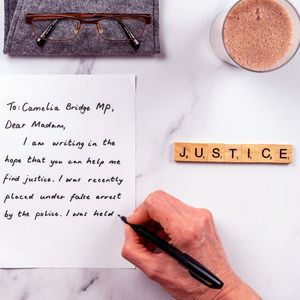 To: Camelia Bridge MP,
Dear Madam,
I am writing in the
hope that you can help me
find justice. I was recently
placed under false arrest
by the police. I was held
JUSTICE